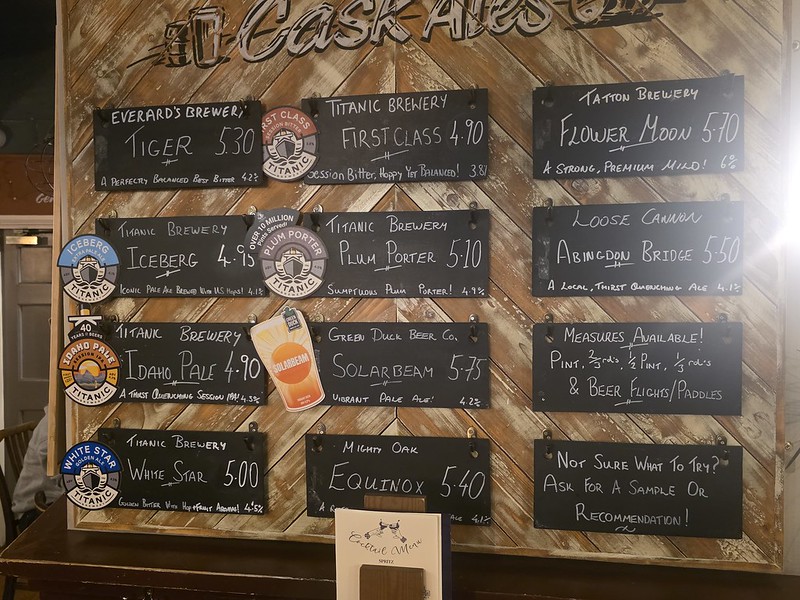 Cask Ales
EVERARD'S BREWERY
TIGER 5.30
A PERFECTLY BALANCED BEST BITTER 4.2%
TITANIC BREWERY
FIRST CLASS 4.90
SESSION BITTER, HOPPY YET BALANCED! 3.8%
FIRST CLASS
SESSION BITTER
TITANIC
TATTON BREWERY
FLOWER MOON 5.70
A STRONG, PREMIUM MILD! 6%
TITANIC BREWERY
ICEBERG 4.95
ICONIC PALE ALE BREWED WITH U.S. HOPS! 4.1%
ICEBERG
TITANIC
OVER 10 MILLION
Pints Served!
PLUM PORTER
TITANIC
TITANIC BREWERY
PLUM PORTER 5.10
SUMPTUOUS PLUM PORTER! 4.9%
LOOSE CANNON
ABINGDON BRIDGE 5.50
A LOCAL, THIRST QUENCHING ALE 4.1%
40
YEARS OF BEERS
IDAHO PALE
TITANIC
TITANIC BREWERY
IDAHO PALE 4.90
A THIRST QUENCHING SESSION IPA! 4.3%
GREEN DUCK
SOLARBEAM
GREEN DUCK BEER CO.
SOLARBEAM 5.75
VIBRANT PALE ALE! 4.2%
MEASURES AVAILABLE!
PINT, 2/3rd's, 1/2 PINT, 1/3rd's
& BEER FLIGHTS/PADDLES
WHITE STAR
GOLDEN ALE
TITANIC
TITANIC BREWERY
WHITE STAR 5.00
GOLDEN BITTER WITH HOP + FRUIT AROMAS! 4.5%
MIGHTY OAK
EQUINOX 5.40
A ALE 4.1%
NOT SURE WHAT TO TRY?
ASK FOR A SAMPLE OR
RECOMMENDATION!
Cocktail Menu
SPRITZ